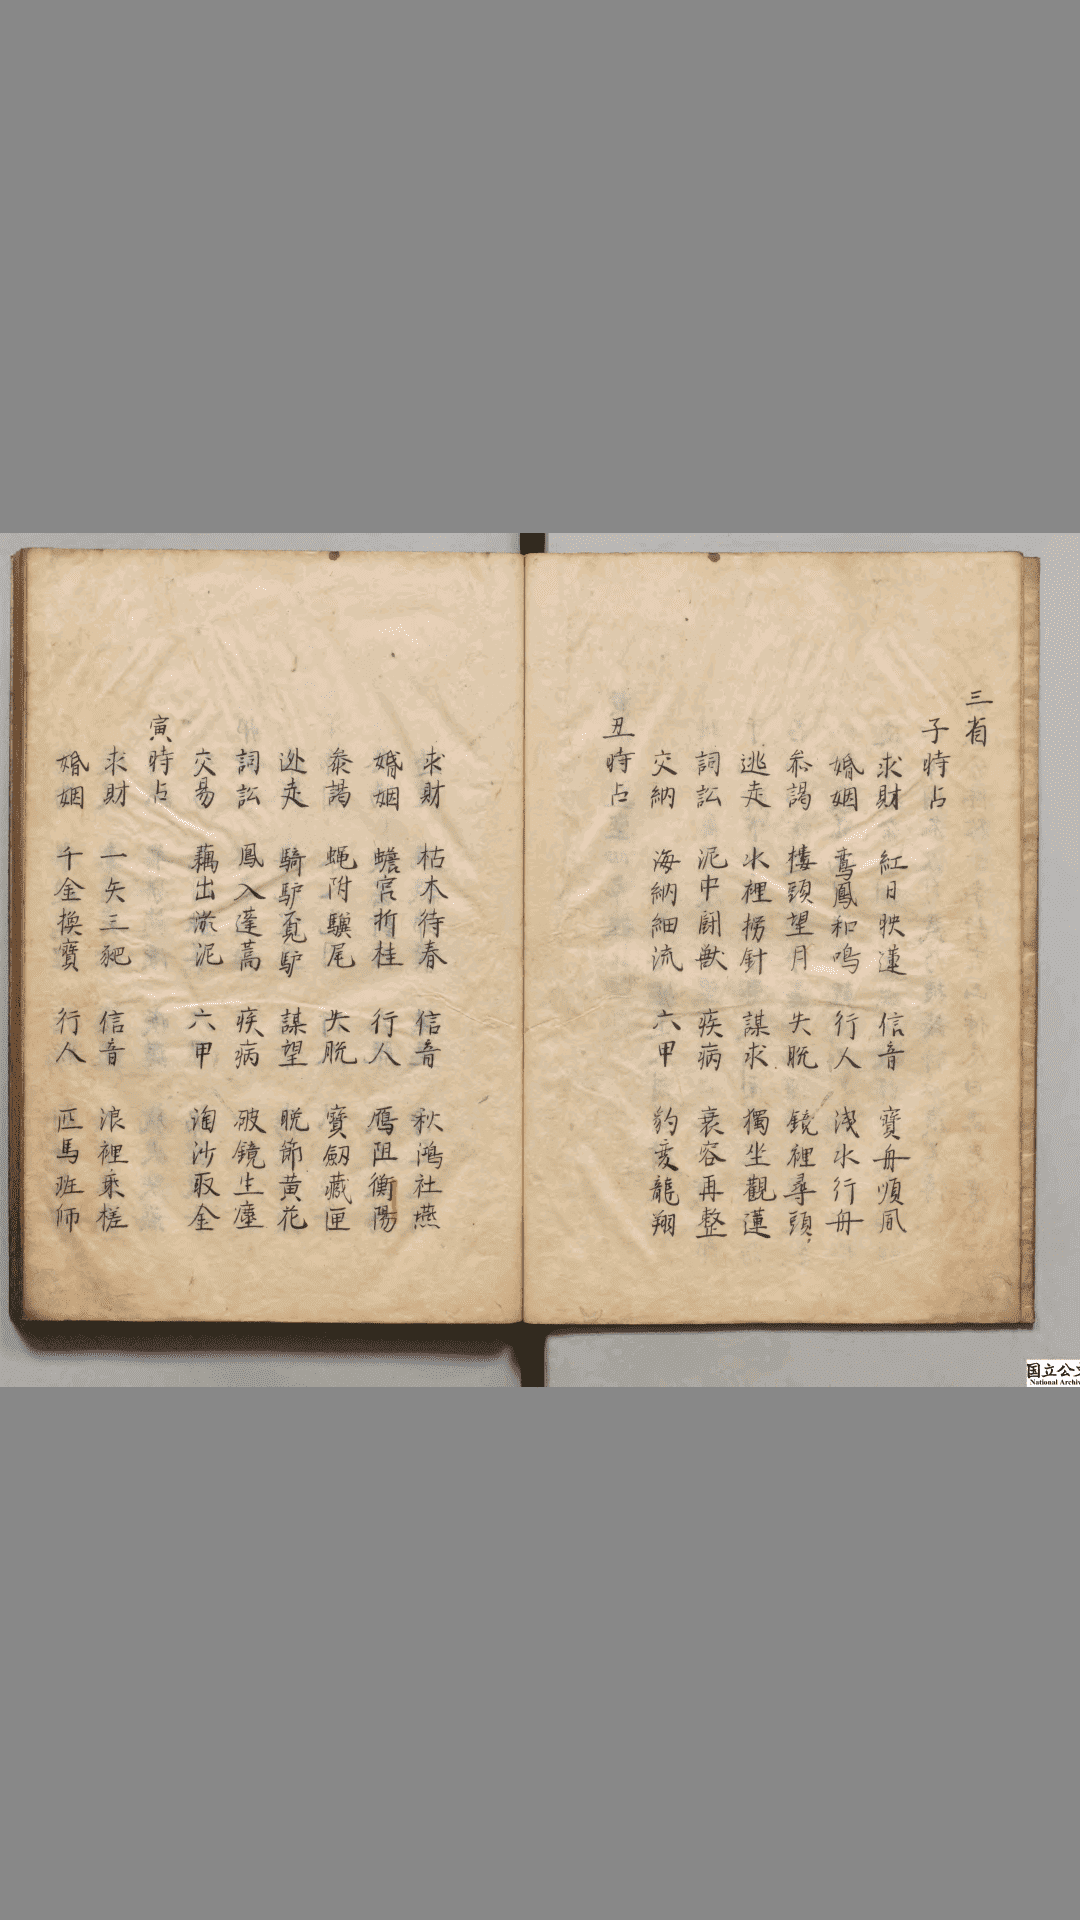 三省
子時占
求財 紅日映蓮 信音 寶舟順風
婚姻 鸞鳳和鳴 行人 淺水行舟
叅謁 樓頭望月 失脫 鏡裡尋頭
逃走 水裡撈針 謀求 獨坐觀蓮
詞訟 泥中鬪獸 疾病 衰容再整
交納 海納細流 六甲 豹変龍翔
丑時占
求財 枯木待春 信音 秋鴻社燕
婚姻 蟾宮折桂 行人 鴈阻衡陽
叅謁 蝇附驥尾 失脫 寶劔藏匣
逃走 騎驴覓驴 謀望 晚節黃花
詞訟 鳳入蓬蒿 疾病 破鏡生塵
交易 藕出淤泥 六甲 淘沙取金
寅時占
求財 一矢三豝 信音 浪裡乘槎
婚姻 千金換寶 行人 匹馬班師
国立公文
National Archiv